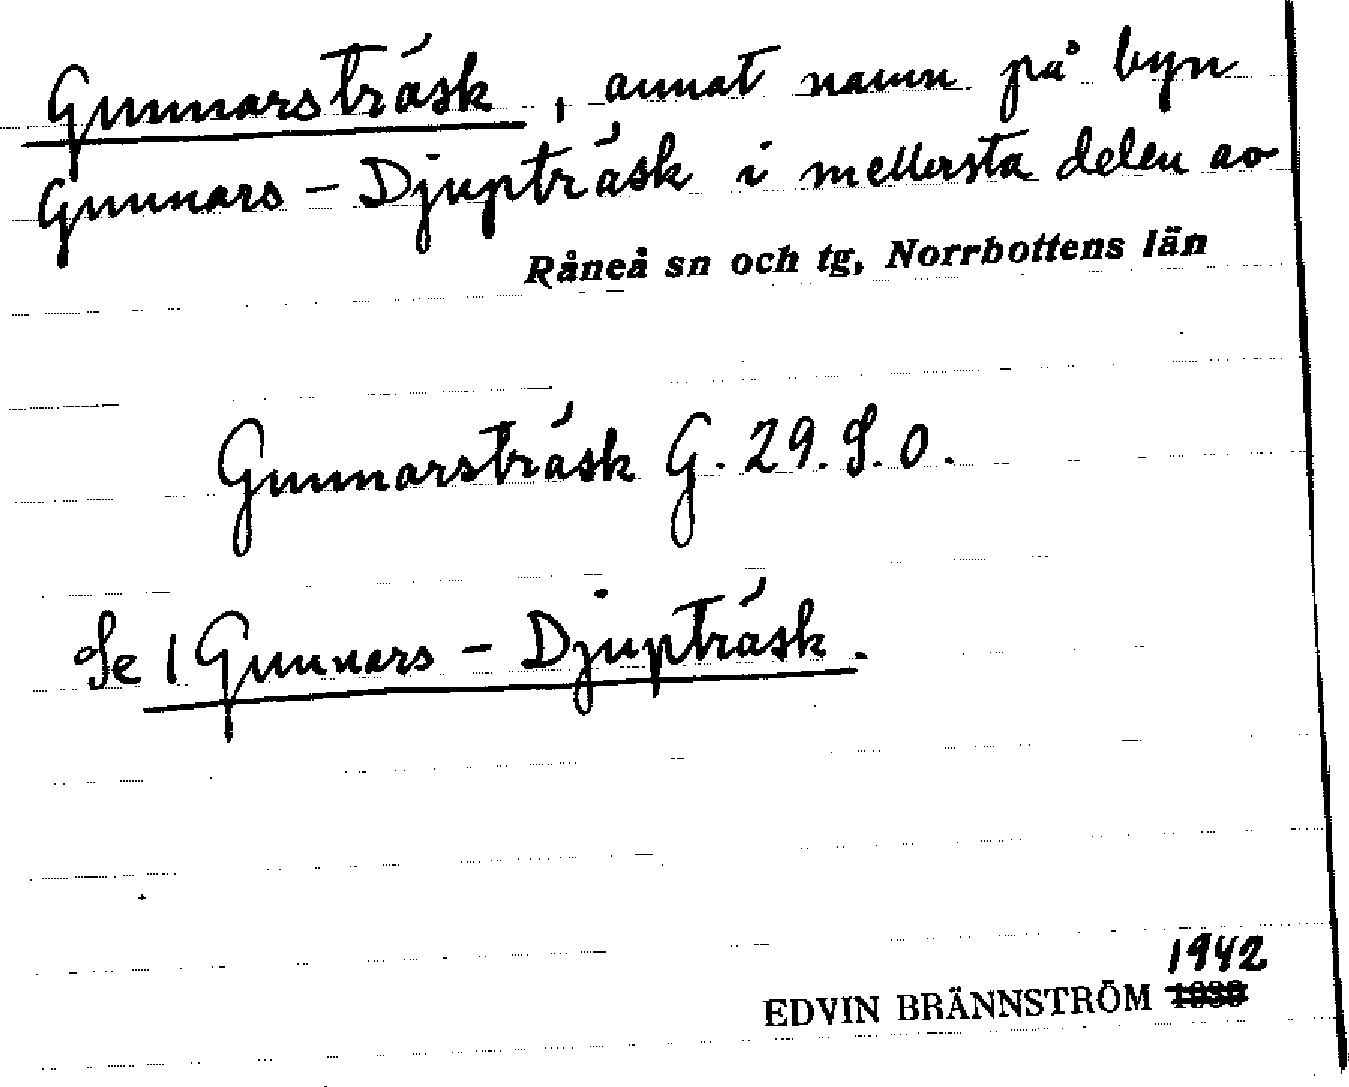 Gunnarsträsk, annat namn på byn
Gunnars - Djupträsk i mellersta delen av
Råneå sn och tg, Norrbottens län
Gunnarsträsk G. 29. S. O.
Se 1 Gunnars - Djupträsk.
1942
EDVIN BRÄNNSTRÖM